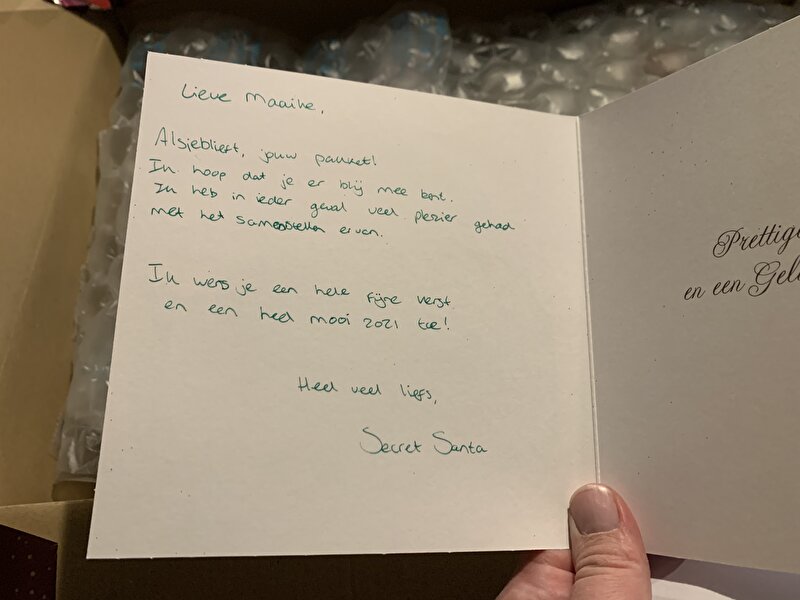 Lieve Maaike,
Alsjeblieft, jouw pakket!
Ik hoop dat je er blij mee bent.
Ik heb in ieder geval veel plezier gehad
met het samenstellen ervan.
Ik wens je een hele fijne kerst
en een heel mooi 2021 toe!
Heel veel liefs,
Secret Santa
Prettige
en een Gel